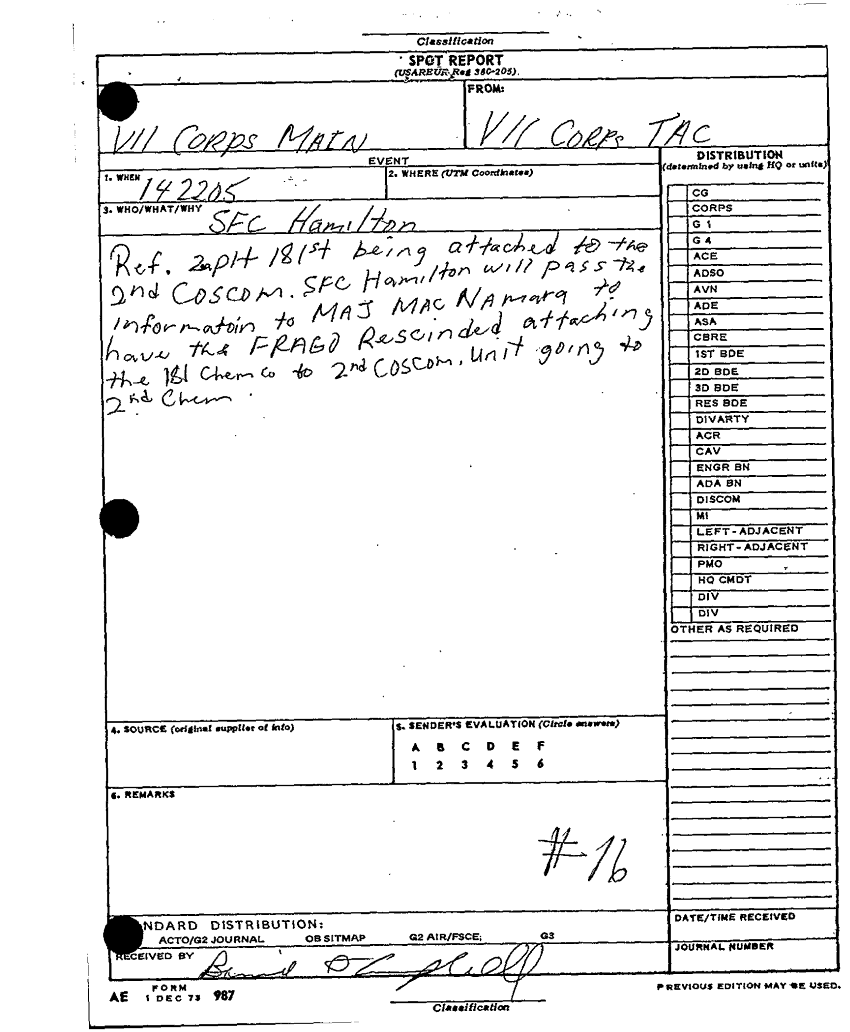 Classification
SPOT REPORT
(USAREUR Reg 380-205).
FROM:
VII CORPS MAIN
VII CORPS TAC
EVENT
DISTRIBUTION
(determined by using HQ or units)
1. WHEN
142205
2. WHERE (UTM Coordinates)
3. WHO/WHAT/WHY
SFC Hamilton
Ref. 181st being attached to the
2nd COSCOM. SFC Hamilton will pass the
informatoin to MAJ MAC NAmara to
have the FRAGO Rescinded attaching
the 181 Chem co to 2nd COSCOM. Unit going to
2nd Chem.
CG
CORPS
G 1
G 4
ACE
ADSO
AVN
ADE
ASA
CBRE
1ST BDE
2D BDE
3D BDE
RES BDE
DIVARTY
ACR
CAV
ENGR BN
ADA BN
DISCOM
MI
LEFT-ADJACENT
RIGHT-ADJACENT
PMO
HQ CMDT
DIV
DIV
OTHER AS REQUIRED
4. SOURCE (original supplier of info)
5. SENDER'S EVALUATION (Circle answers)
A B C D E F
1 2 3 4 5 6
6. REMARKS
#16
NDARD DISTRIBUTION:
ACTO/G2 JOURNAL OB SITMAP G2 AIR/FSCE; G3
RECEIVED BY
DATE/TIME RECEIVED
JOURNAL NUMBER
AE FORM 1 DEC 73 987
PREVIOUS EDITION MAY BE USED.
Classification